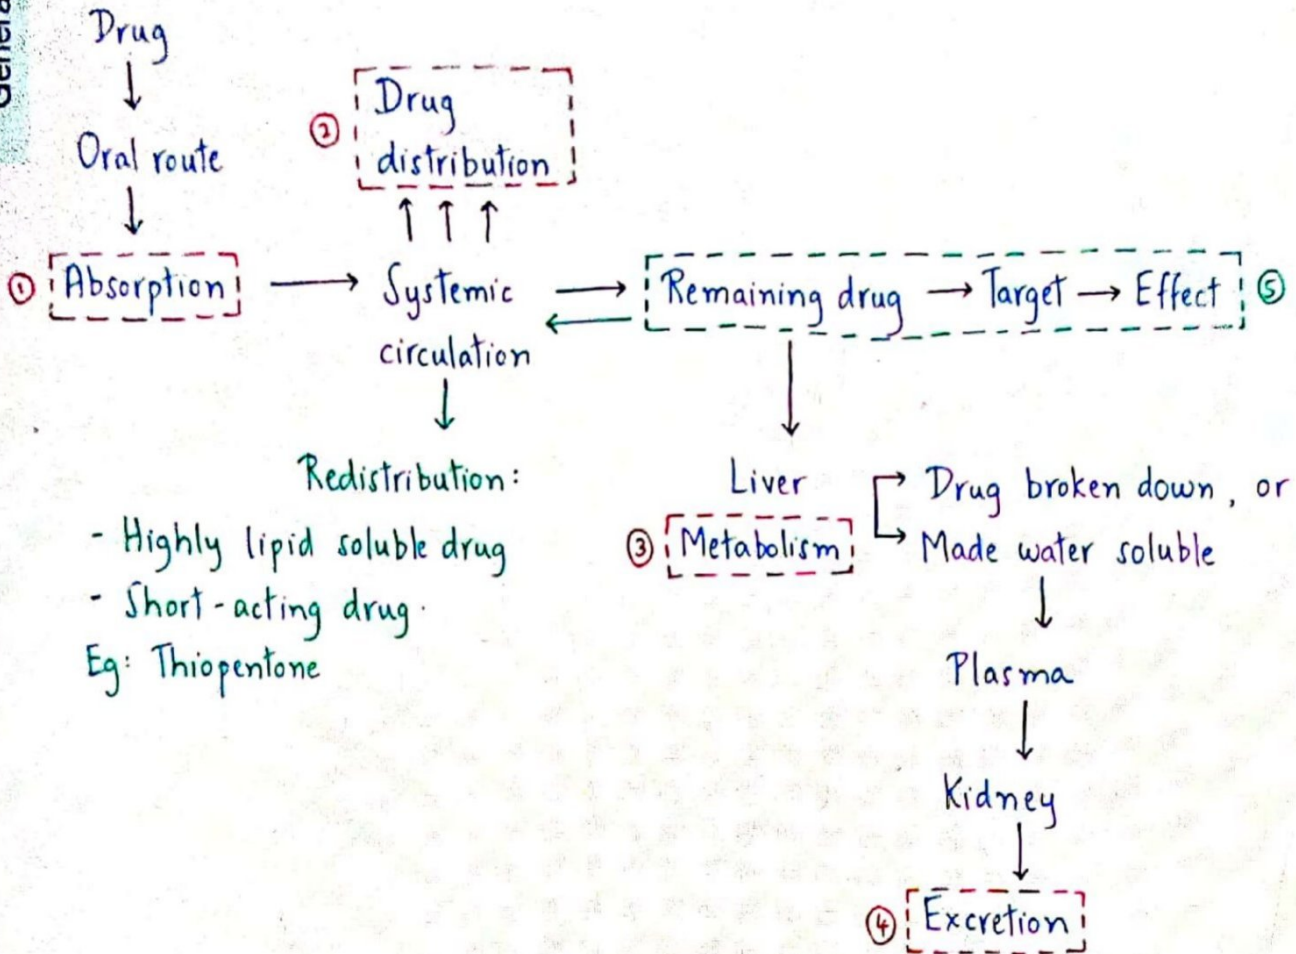 Drug
↓
Oral route
↓
① Absorption → Systemic
circulation
② Drug
distribution
↑ ↑ ↑
→ Remaining drug → Target → Effect ⑤
←
↓
Redistribution:
- Highly lipid soluble drug
- Short-acting drug.
Eg: Thiopentone
↓
Liver
③ Metabolism
Drug broken down, or
Made water soluble
↓
Plasma
↓
Kidney
↓
④ Excretion